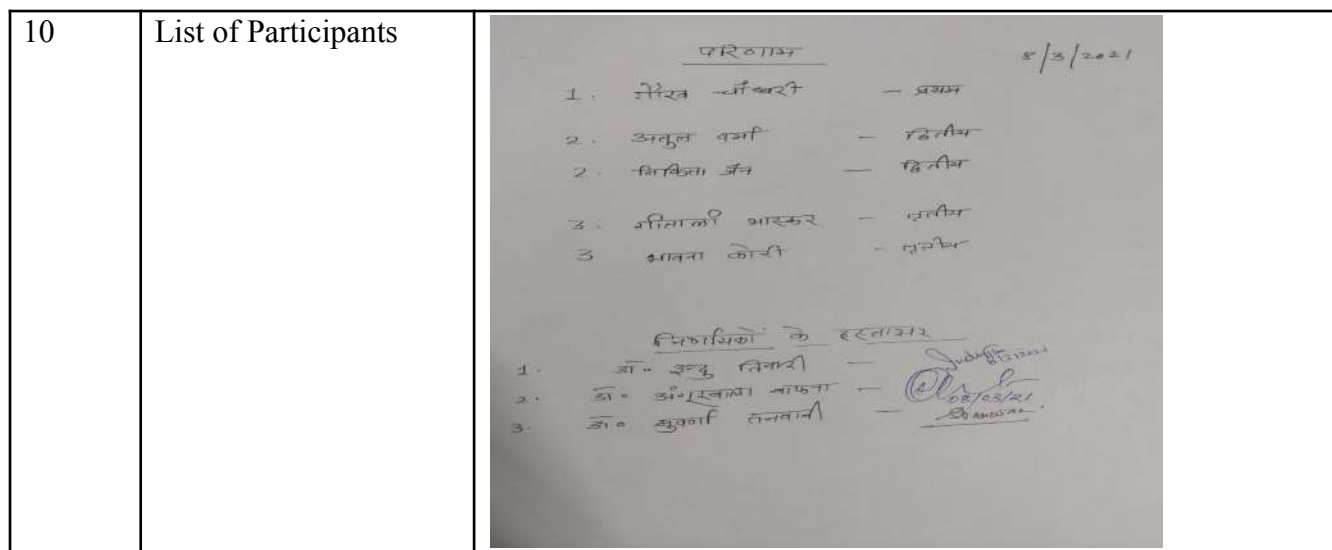 10 List of Participants
परिणाम 8/3/2021
1. गौरव चौधरी - प्रथम
2. अतुल वर्मा - द्वितीय
2. निकिता जैन - द्वितीय
3. गीताली भास्कर - तृतीय
3 भावना कोरी - तृतीय
निर्णायकों के हस्ताक्षर
1. डॉ॰ इन्दु तिवारी -
2. डॉ॰ अंगूरबाला बाफना - 08/03/21
3. डॉ॰ सुवर्णा तनवानी -